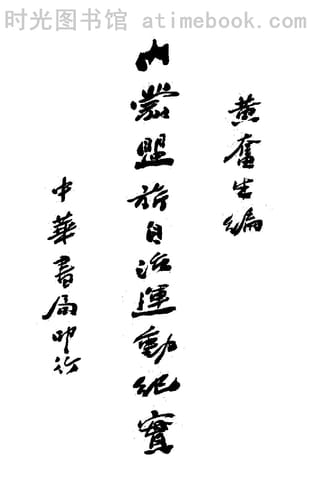 时光图书馆 atimebook.com
黄奮生编
内蒙盟旂自治運動紀實
中華書局印行